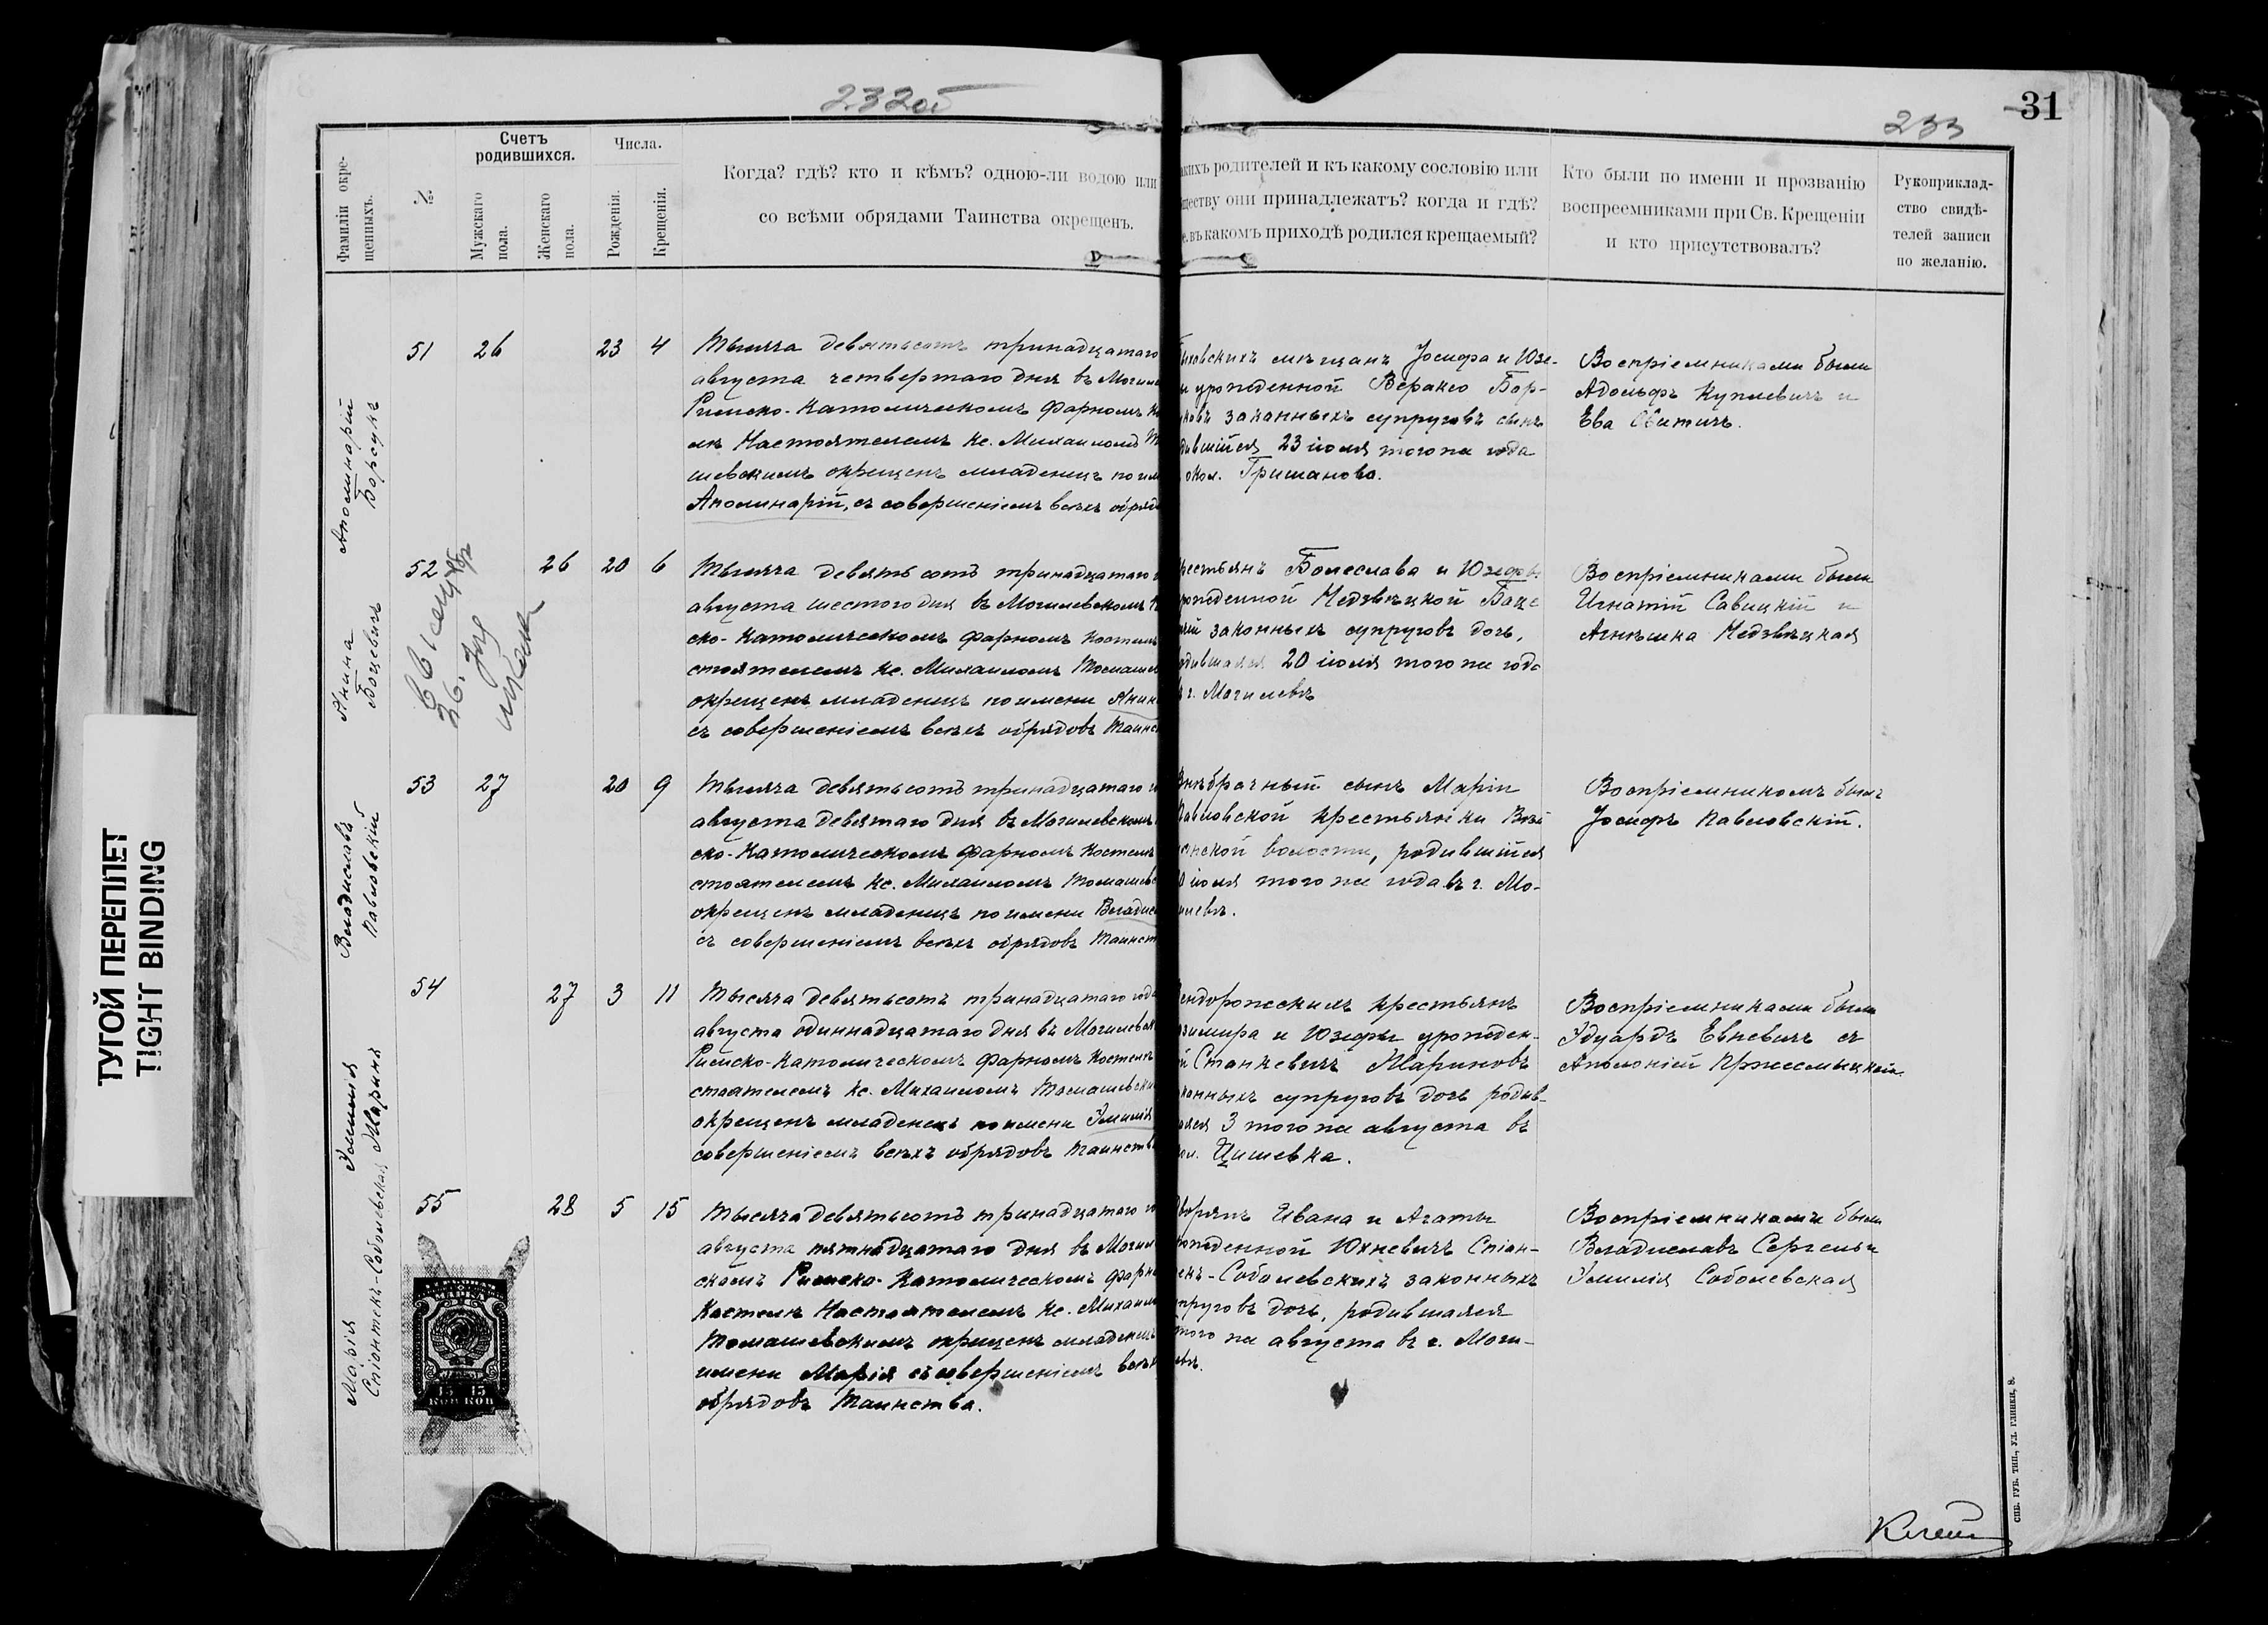 232об
31
233
Фамиліи окре-
щенныхъ.
№
Счетъ
родившихся.
Мужскаго
пола.
Женскаго
пола.
Числа.
Рожденія.
Крещенія.
Когда? гдѣ? кто и кѣмъ? одною-ли водою или
со всѣми обрядами Таинства окрещенъ.
акихъ родителей и къ какому сословію или
ществу они принадлежатъ? когда и гдѣ?
е. въ какомъ приходѣ родился крещаемый?
Кто были по имени и прозванію
воспреемниками при Св. Крещеніи
и кто присутствовалъ?
Рукоприклад-
ство свидѣ-
телей записи
по желанію.
Аполинарій
Борсукъ
51 26 23 4
Тысяча девятьсотъ тринадцатаго
августа четвертаго дня въ Могиле
Римско-Католическомъ Фарномъ Ко
лѣ Настоятелемъ Кс. Михаиломъ То
шевскимъ окрещенъ младенецъ по им
Аполинарій, съ совершеніемъ всѣхъ обряд
ховскихъ мѣщанъ Іосифа и Юзе-
и урожденной Вераксо Бор-
ковъ законныхъ супруговъ сынъ
дившійся 23 іюля того же года
окол. Гришаново.
Воспріемниками были
Адольфъ Куплевичъ и
Ева Свитичъ.
Анна
Боцевичъ
52 26 20 6
Тысяча девятьсотъ тринадцатаго
августа шестого дня въ Могилевскомъ
ско-Католическомъ Фарномъ Костел
стоятелемъ Кс. Михаиломъ Томашев
окрещенъ младенецъ по имени Анн
съ совершеніемъ всѣхъ обрядовъ Таинс
рестьянъ Болеслава и Юзефы
рожденной Недзвѣцкой Боце
законныхъ супруговъ дочь,
дившаяся 20 іюля того же года
г. Могилевѣ
Воспріемниками были
Игнатій Савицкій и
Агнѣшка Недзвѣцкая
Владиславъ
Павловскій
53 27 20 9
Тысяча девятьсотъ тринадцатаго
августа девятаго дня въ Могилевскомъ
ско-Католическомъ Фарномъ Костелѣ
стоятелемъ Кс. Михаиломъ Томашевс
окрещенъ младенецъ по имени Владис
съ совершеніемъ всѣхъ обрядовъ Таинст
Внѣбрачный сынъ Маріи
Павловской крестьянки
нской волости, родившійся
іюля того же года въ г. Мо-
илевѣ.
Воспріемникомъ былъ
Іосифъ Павловскій.
Эмилія
Жарина
54 27 3 11
Тысяча девятьсотъ тринадцатаго года
августа одиннадцатаго дня въ Могилевск
Римско-Католическомъ Фарномъ Костелѣ
стоятелемъ Кс. Михаиломъ Томашевски
окрещенъ младенецъ по имени Эмилія
совершеніемъ всѣхъ обрядовъ Таинств
ендорожскихъ крестьянъ
зимира и Юзефы урожден-
й Станкевичъ Жариновъ
конныхъ супруговъ дочь родив-
аяся 3 того же августа въ
ол. Цишевка.
Воспріемниками были
Эдуардъ Евневичъ съ
Аполоніей Пржесмыцкой.
Марія
Спіонтекъ-Соболевская
55 28 5 15
Тысяча девятьсотъ тринадцатаго го
августа пятнадцатаго дня въ Могил
скомъ Римско-Католическомъ Фарно
Костелѣ Настоятелемъ Кс. Михаил
Томашевскимъ окрещенъ младенецъ
имени Марія съ совершеніемъ всѣх
обрядовъ Таинства.
Дворянъ Ивана и Агаты
рожденной Юхневичъ Спіон-
екъ-Соболевскихъ законныхъ
пруговъ дочь, родившаяся
того же августа въ г. Моги-
евѣ.
Воспріемниками были
Владиславъ Сергель и
Эмилія Соболевская
15 15
КОП КОП
ТУГОЙ ПЕРЕПЛЕТ
TIGHT BINDING
СПБ. ГУБ. ТИП., УЛ. ГЛИНКИ, 8.